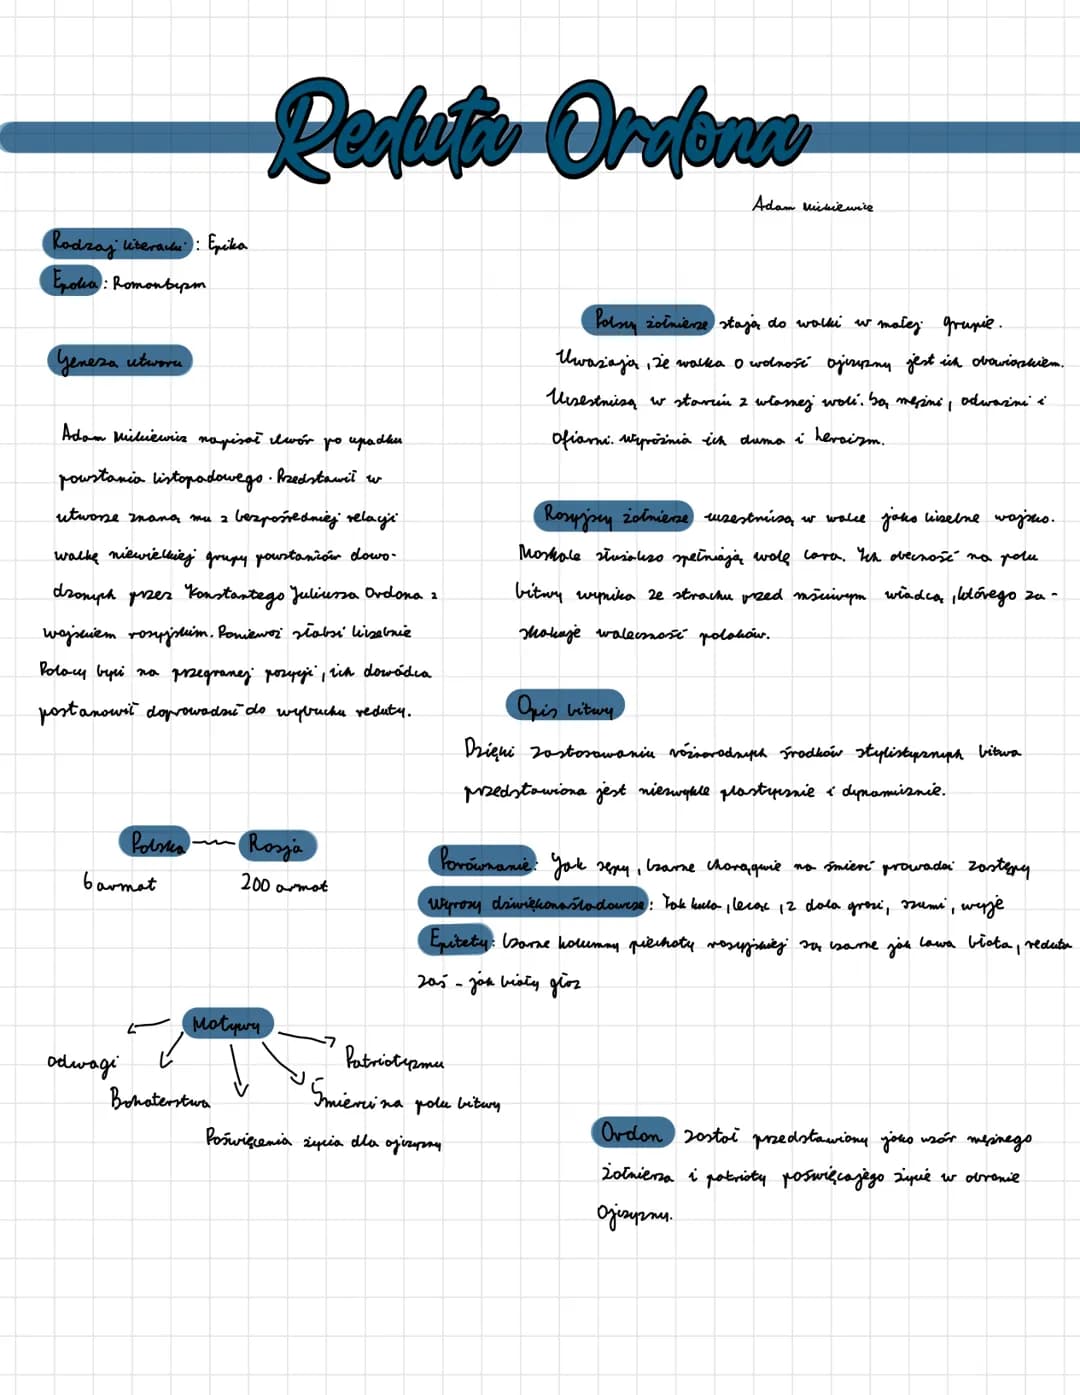 Reduta Ordona
Adam Mickiewicz
Rodzaj literacki : Epika
Epoka : Romantyzm
Geneza utworu
Adam Mickiewicz napisał utwór po upadku
powstania listopadowego. Przedstawił w
utworze znaną mu z bezpośredniej relacji
walkę niewielkiej grupy powstańców dowo-
dzonych przez Konstantego Juliusza Ordona z
wojskiem rosyjskim. Ponieważ słabsi liczebnie
Polacy byli na przegranej pozycji, ich dowódca
postanowił doprowadzić do wybuchu reduty.
Polska Rosja
6 armat 200 armat
Motywy
odwagi
Bohaterstwa
Poświęcenia życia dla ojczyzny
Śmierci na polu bitwy
Patriotyzmu
Polscy żołnierze stają do walki w małej grupie.
Uważają, że walka o wolność ojczyzny jest ich obowiązkiem.
Uczestniczą w starciu z własnej woli. Są mężni, odważni i
ofiarni. Wyróżnia ich duma i heroizm.
Rosyjscy żołnierze uczestniczą w walce jako liczebne wojsko.
Moskale służalczo spełniają wolę cara. Ich obecność na polu
bitwy wynika ze strachu przed mściwym władcą, którego za-
skakuje waleczność polaków.
Opis bitwy
Dzięki zastosowaniu różnorodnych środków stylistycznych bitwa
przedstawiona jest niezwykle plastycznie i dynamicznie.
Porównanie: Jak sępy, czarne chorągwie na śmierć prowadzi zastępy
Wyrazy dźwiękonaśladowcze: Tak kula, lecąc, z dala grozi, szumi, wyje
Epitety: Czarne kolumny piechoty rosyjskiej są czarne jak lawa błota, reduta
zaś - jak biały głaz
Ordon został przedstawiony jako wzór mężnego
żołnierza i patrioty poświęcającego życie w obronie
Ojczyzny.